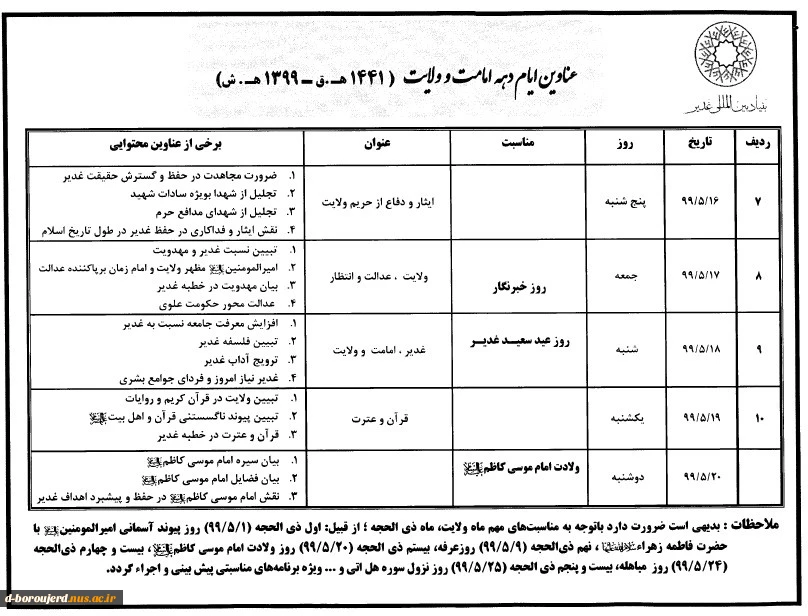 بنیاد بین المللی غدیر
عناوین ایام دهه امامت و ولایت ( ۱۴۴۱ هـ.ق – ۱۳۹۹ هـ.ش)
ردیف تاریخ روز مناسبت عنوان برخی از عناوین محتوایی
۷ ۹۹/۵/۱۶ پنج شنبه ایثار و دفاع از حریم ولایت
۱. ضرورت مجاهدت در حفظ و گسترش حقیقت غدیر
۲. تجلیل از شهدا بویژه سادات شهید
۳. تجلیل از شهدای مدافع حرم
۴. نقش ایثار و فداکاری در حفظ غدیر در طول تاریخ اسلام
۸ ۹۹/۵/۱۷ جمعه روز خبرنگار ولایت ، عدالت و انتظار
۱. تبیین نسبت غدیر و مهدویت
۲. امیرالمومنین مظهر ولایت و امام زمان برپاکننده عدالت
۳. بیان مهدویت در خطبه غدیر
۴. عدالت محور حکومت علوی
۹ ۹۹/۵/۱۸ شنبه روز عید سعیــد غدیــر غدیر ، امامت و ولایت
۱. افزایش معرفت جامعه نسبت به غدیر
۲. تبیین فلسفه غدیر
۳. ترویج آداب غدیر
۴. غدیر نیاز امروز و فردای جوامع بشری
۱۰ ۹۹/۵/۱۹ یکشنبه قرآن و عترت
۱. تبیین ولایت در قرآن کریم و روایات
۲. تبیین پیوند ناگسستنی قرآن و اهل بیت
۳. قرآن و عترت در خطبه غدیر
۹۹/۵/۲۰ دوشنبه ولادت امام موسی کاظم
۱. بیان سیره امام موسی کاظم
۲. بیان فضایل امام موسی کاظم
۳. نقش امام موسی کاظم در حفظ و پیشبرد اهداف غدیر
ملاحظات : بدیهی است ضرورت دارد باتوجه به مناسبت‌های مهم ماه ولایت، ماه ذی الحجه ؛ از قبیل: اول ذی الحجه (۹۹/۵/۱) روز پیوند آسمانی امیرالمومنین با
حضرت فاطمه زهراء ، نهم ذی‌الحجه (۹۹/۵/۹) روزعرفه، بیستم ذی الحجه (۹۹/۵/۲۰) روز ولادت امام موسی کاظم ، بیست و چهارم ذی‌الحجه
(۹۹/۵/۲۴) روز مباهله، بیست و پنجم ذی الحجه (۹۹/۵/۲۵) روز نزول سوره هل اتی و ... ویژه برنامه‌های مناسبتی پیش بینی و اجراء گردد.
d-boroujerd.nus.ac.ir